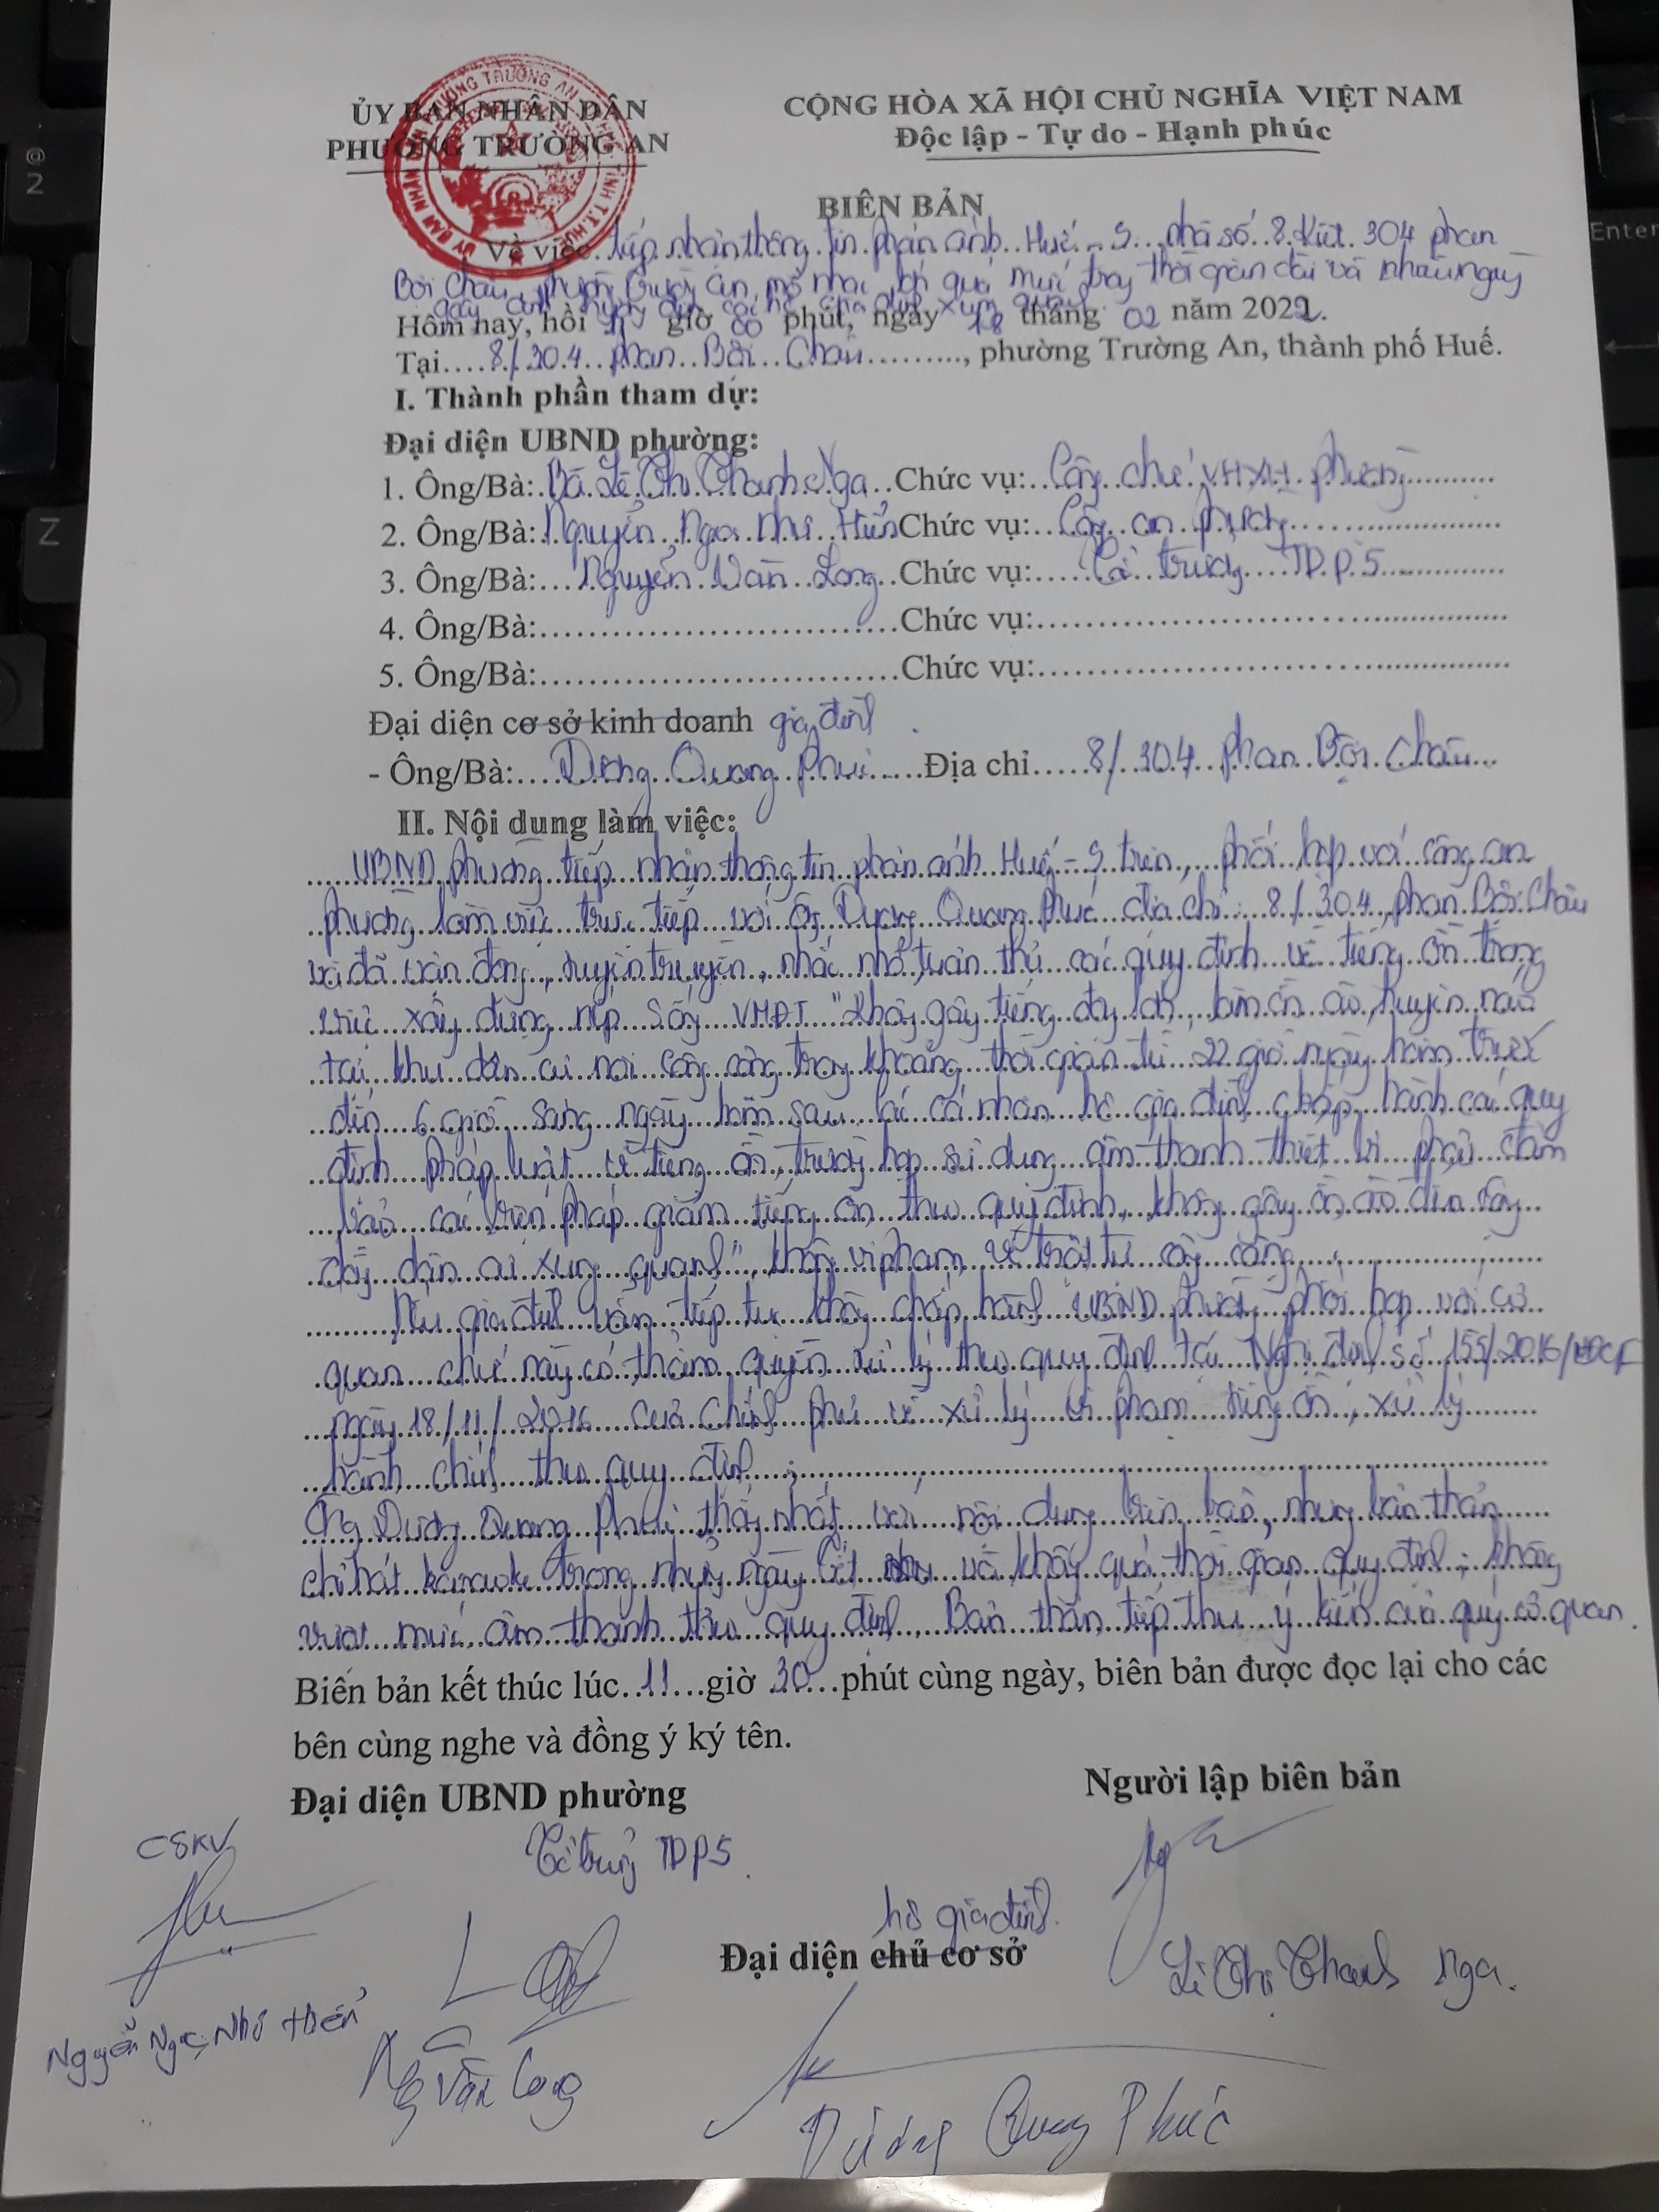 ỦY BAN NHÂN DÂN
PHƯỜNG TRƯỜNG AN
CỘNG HÒA XÃ HỘI CHỦ NGHĨA VIỆT NAM
Độc lập - Tự do - Hạnh phúc
BIÊN BẢN
Về việc tiếp nhận thông tin phản ánh Huế - S nhà số 8 Kiệt 304 Phan
Bội Châu, phường Trường An mở nhạc lớn quá mức trong thời gian dài và nhiều ngày
gây ảnh hưởng đến các hộ gia đình xung quanh
Hôm nay, hồi 11 giờ 00 phút, ngày 18 tháng 02 năm 2022.
Tại....8/304 Phan Bội Châu.........., phường Trường An, thành phố Huế.
I. Thành phần tham dự:
Đại diện UBND phường:
1. Ông/Bà: Bà Lê Thị Thanh Nga Chức vụ: Công chức VHXH phường
2. Ông/Bà: Nguyễn Ngọc Như Hiển Chức vụ: Công an phường
3. Ông/Bà: Nguyễn Văn Long Chức vụ: Tổ trưởng TDP 5
4. Ông/Bà:..............................Chức vụ:..............................
5. Ông/Bà:..............................Chức vụ:..............................
Đại diện cơ sở kinh doanh gia đình
- Ông/Bà: Dương Quang Phúc Địa chỉ 8/304 Phan Bội Châu
II. Nội dung làm việc:
UBND phường tiếp nhận thông tin phản ánh Huế - S trên, phối hợp với công an
phường làm việc trực tiếp với ông Dương Quang Phúc địa chỉ : 8/304 Phan Bội Châu
và đã vận động, tuyên truyền, nhắc nhở tuân thủ các quy định về tiếng ồn trong
việc xây dựng nếp sống VMĐT "Không gây tiếng động lớn, làm ồn ào, huyên náo
tại khu dân cư nơi công cộng trong khoảng thời gian từ 22 giờ ngày hôm trước
đến 6 giờ sáng ngày hôm sau các cá nhân hộ gia đình chấp hành các quy
định pháp luật về tiếng ồn, trường hợp sử dụng âm thanh thiết bị phải đảm
bảo các biện pháp giảm tiếng ồn theo quy định, không gây ồn ào đến cộng
đồng dân cư xung quanh", không vi phạm về trật tự công cộng
Nếu gia đình vẫn tiếp tục không chấp hành UBND phường phối hợp với cơ
quan chức năng có thẩm quyền xử lý theo quy định tại Nghị định số 155/2016/NĐCP
ngày 18/11/2016 của Chính phủ về xử lý vi phạm tiếng ồn, xử lý
hành chính theo quy định ;
Ông Dương Quang Phúc thống nhất với nội dung biên bản, nhưng bản thân
chỉ hát karaoke trong những ngày Tết và không quá thời gian quy định ; không
vượt mức âm thanh theo quy định. Bản thân tiếp thu ý kiến của quý cơ quan.
Biên bản kết thúc lúc 11 giờ 30 phút cùng ngày, biên bản được đọc lại cho các
bên cùng nghe và đồng ý ký tên.
Đại diện UBND phường
Người lập biên bản
CSKV
Tổ trưởng TDP5
hộ gia đình
Đại diện chủ cơ sở
Lê Thị Thanh Nga
Nguyễn Ngọc Như Hiển
Ng Văn Long
Dương Quang Phúc